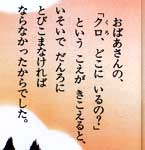 おばあさんの、
「クロ、どこに いるの?」
という こえが きこえると、
いそいで だんろに
とびこまなければ
ならなかったからでした。